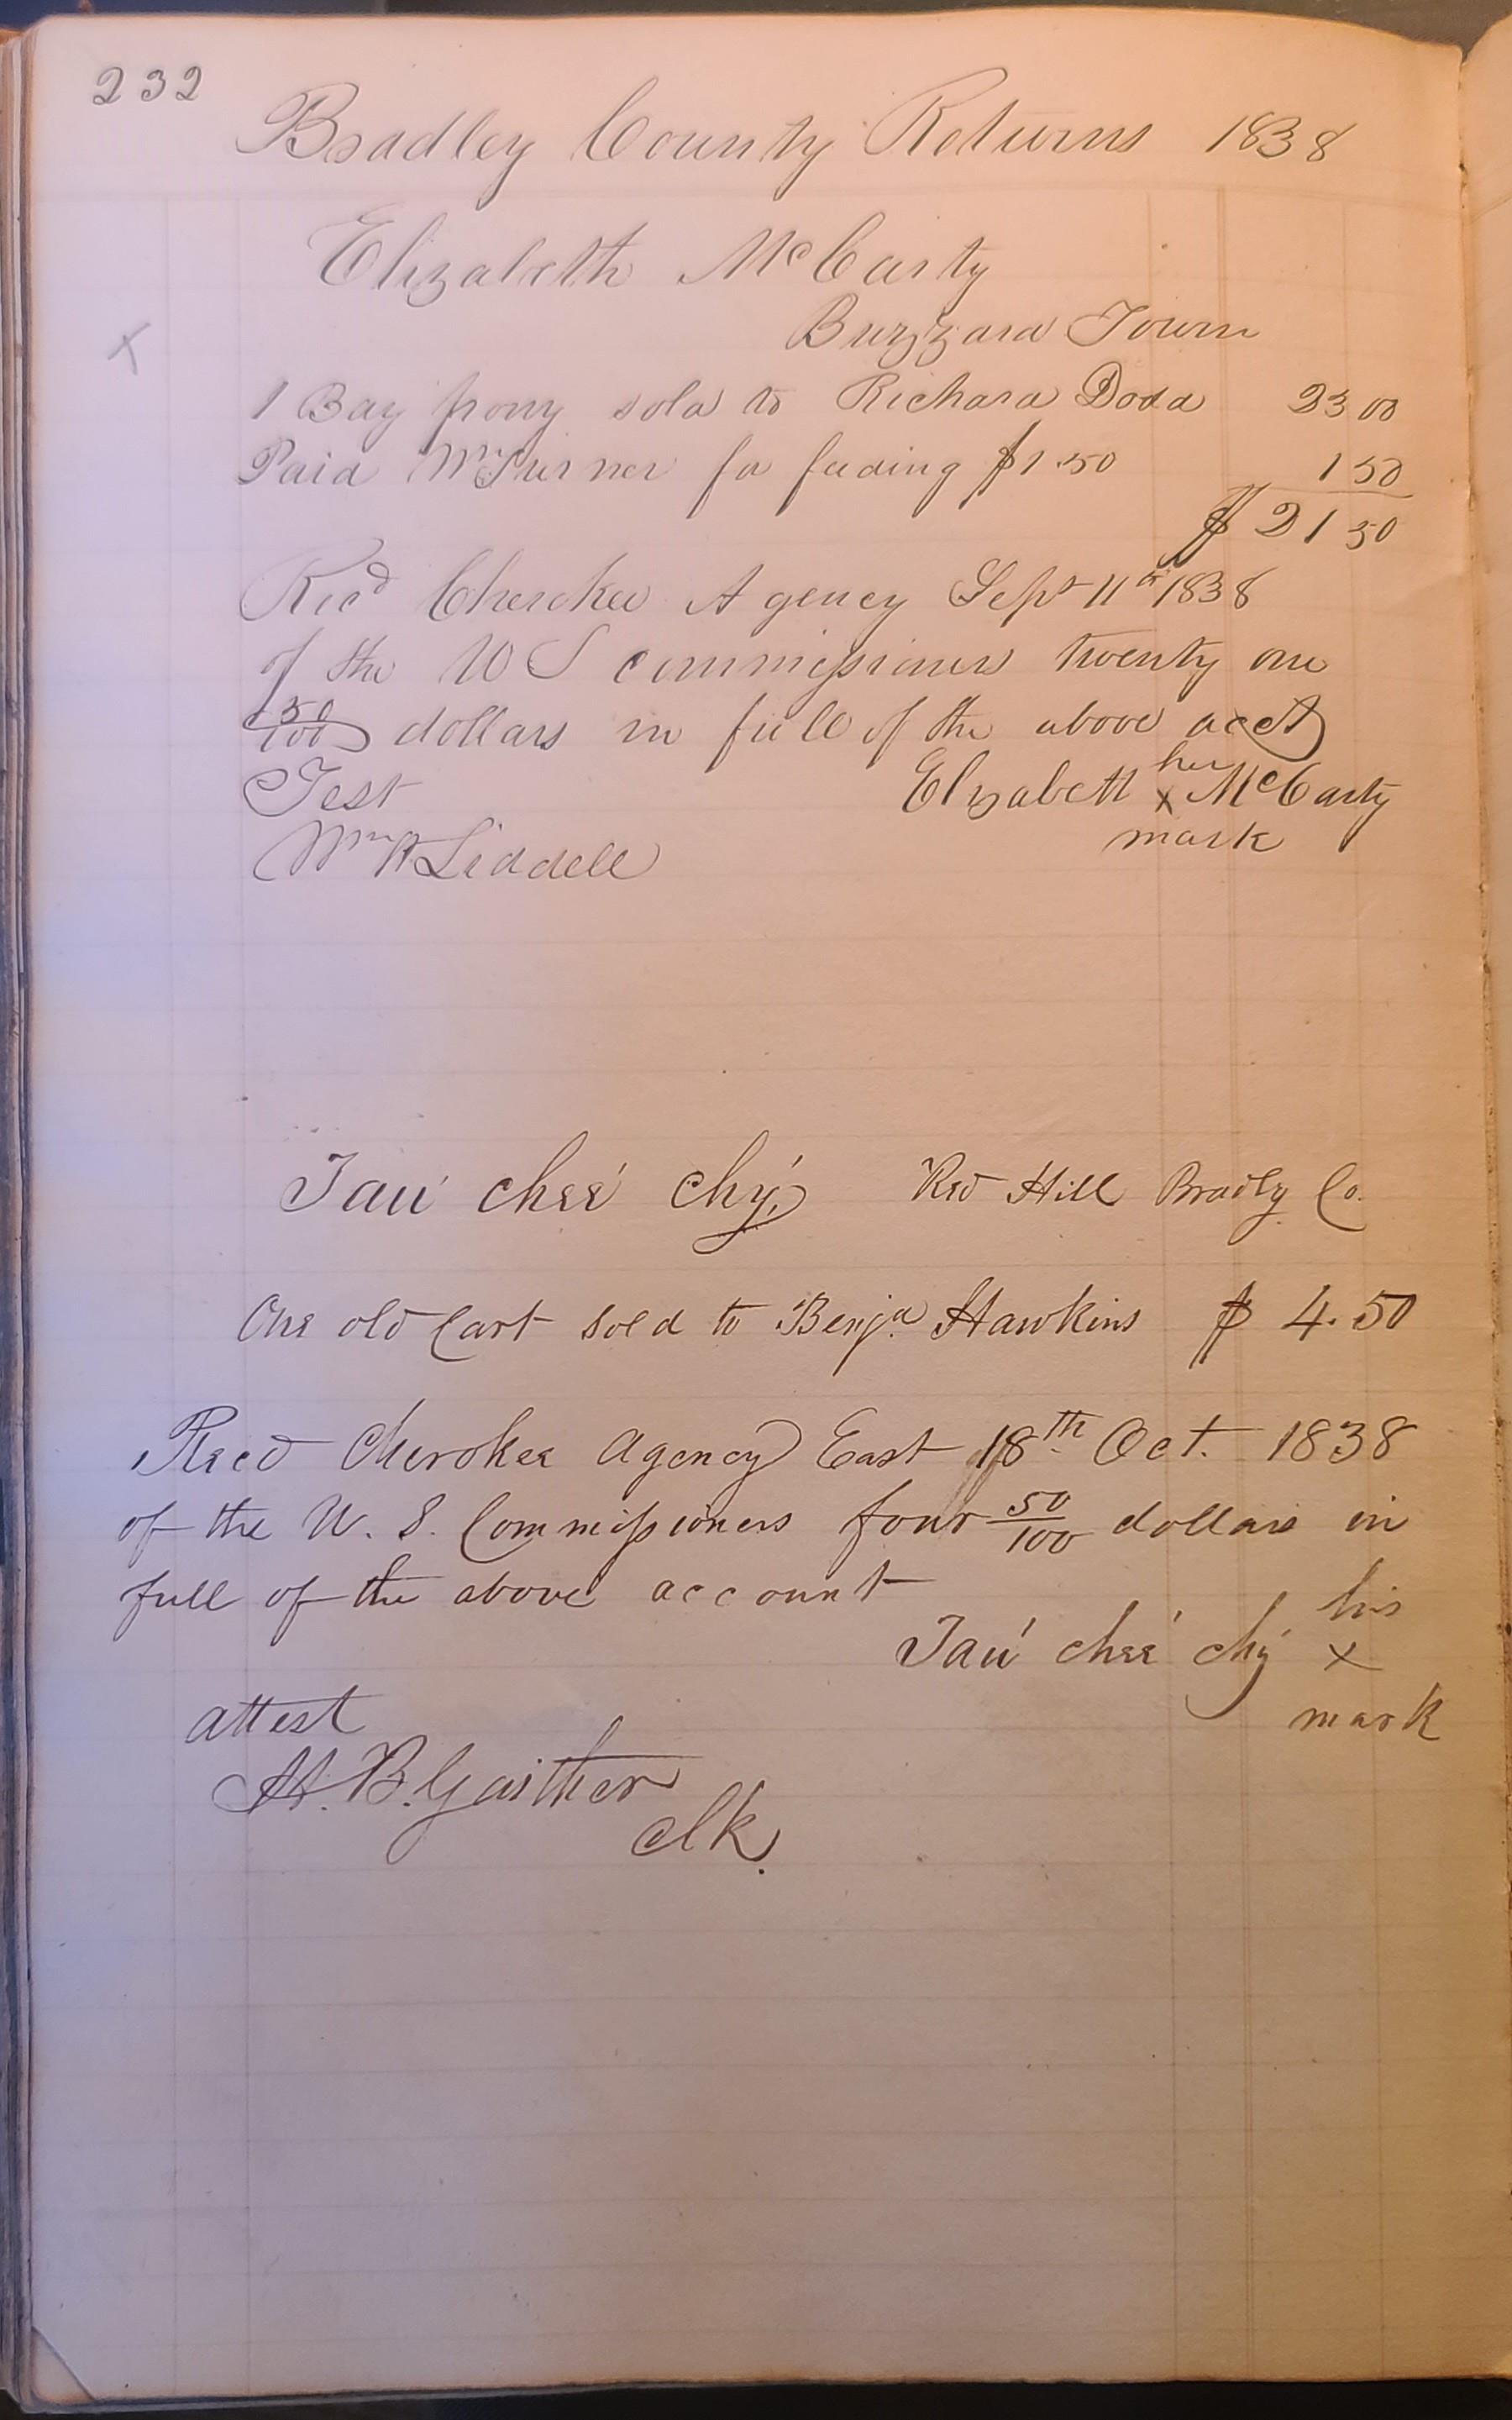 232
Bradley County Returns 1838
Elizabeth McCarty
Buzzard Town
x
1 Bay pony sold to Richard Dodd 23 00
Paid Wm Turner for feeding $1.50 1 50
$ 21 50
Recd Cherokee Agency Sept 11th 1838
of the US commissioners twenty one
50/100 dollars in full of the above acct
Test Elizabeth her x McCarty
mark
Wm H Liddell
Tau' chee' chy' Red Hill Bradly Co.
One old Cart sold to Benja Hawkins $ 4.50
Recd Cherokee Agency East 18th Oct. 1838
of the U. S. Commissioners four 50/100 dollars in
full of the above account
his
Tau' chee' chy' x
mark
attest
A. B. Gaither
Clk.